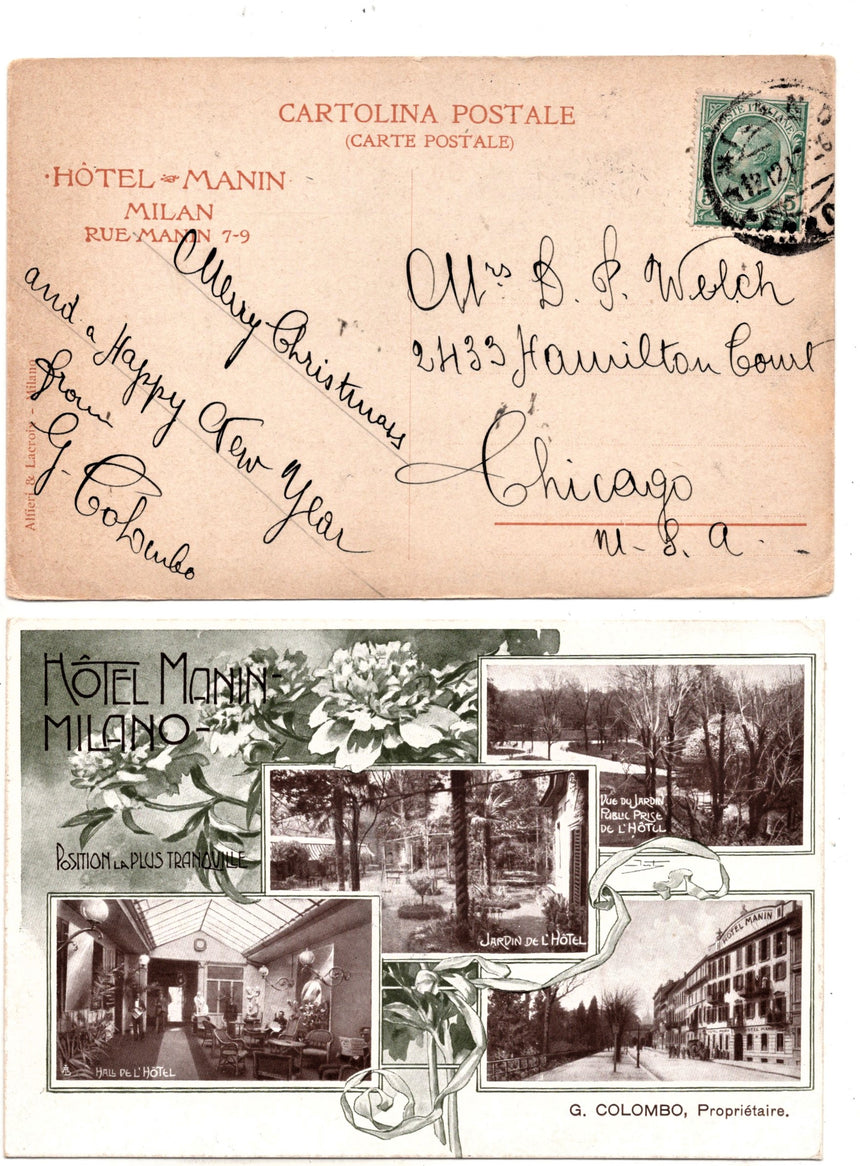 CARTOLINA POSTALE
(CARTE POSTALE)
HÔTEL MANIN
MILAN
RUE MANIN 7-9
POSTE ITALIANE
5
12.12.1
Merry Christmass
and a Happy New Year
from
G. Colombo
Mrs D. P. Welch
2433 Hamilton Court
Chicago
U. S. A.
Alfieri & Lacroix - Milano
HÔTEL MANIN-
MILANO-
POSITION LA PLUS TRANQUILLE
VUE DU JARDIN
PUBLIC PRISE
DE L'HÔTEL
JARDIN DE L'HÔTEL
HALL DE L'HÔTEL
HOTEL MANIN
G. COLOMBO, Propriétaire.